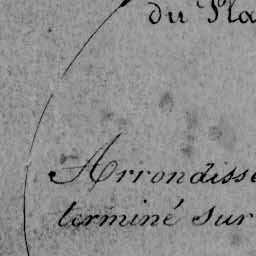 du Pla
Arrondisse
terminé sur